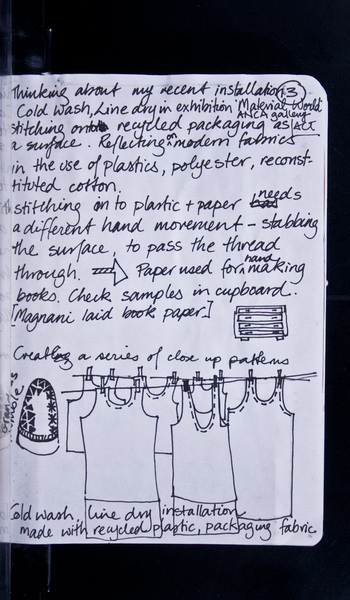 Thinking about my recent installation 3
Cold Wash, Line dry in exhibition 'Material World
ANCA gallery
stitching onto recycled packaging as ACT
a surface. Reflecting on modern fabrics
in the use of plastics, polyester, reconst-
tituted cotton.
stitching on to plastic + paper needs
a different hand movement - stabbing
the surface, to pass the thread
through. Paper used for hand making
books. Check samples in cupboard.
[Magnani laid book paper.]
Creating a series of close up patterns
Cold wash, line dry installation
made with recycled plastic, packaging fabric